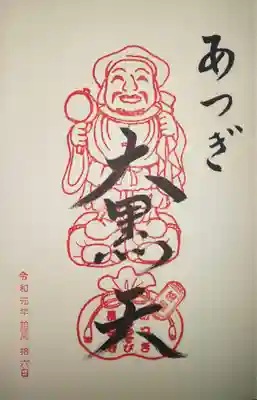 あつぎ
大黒天
令和元年拾月拾六日